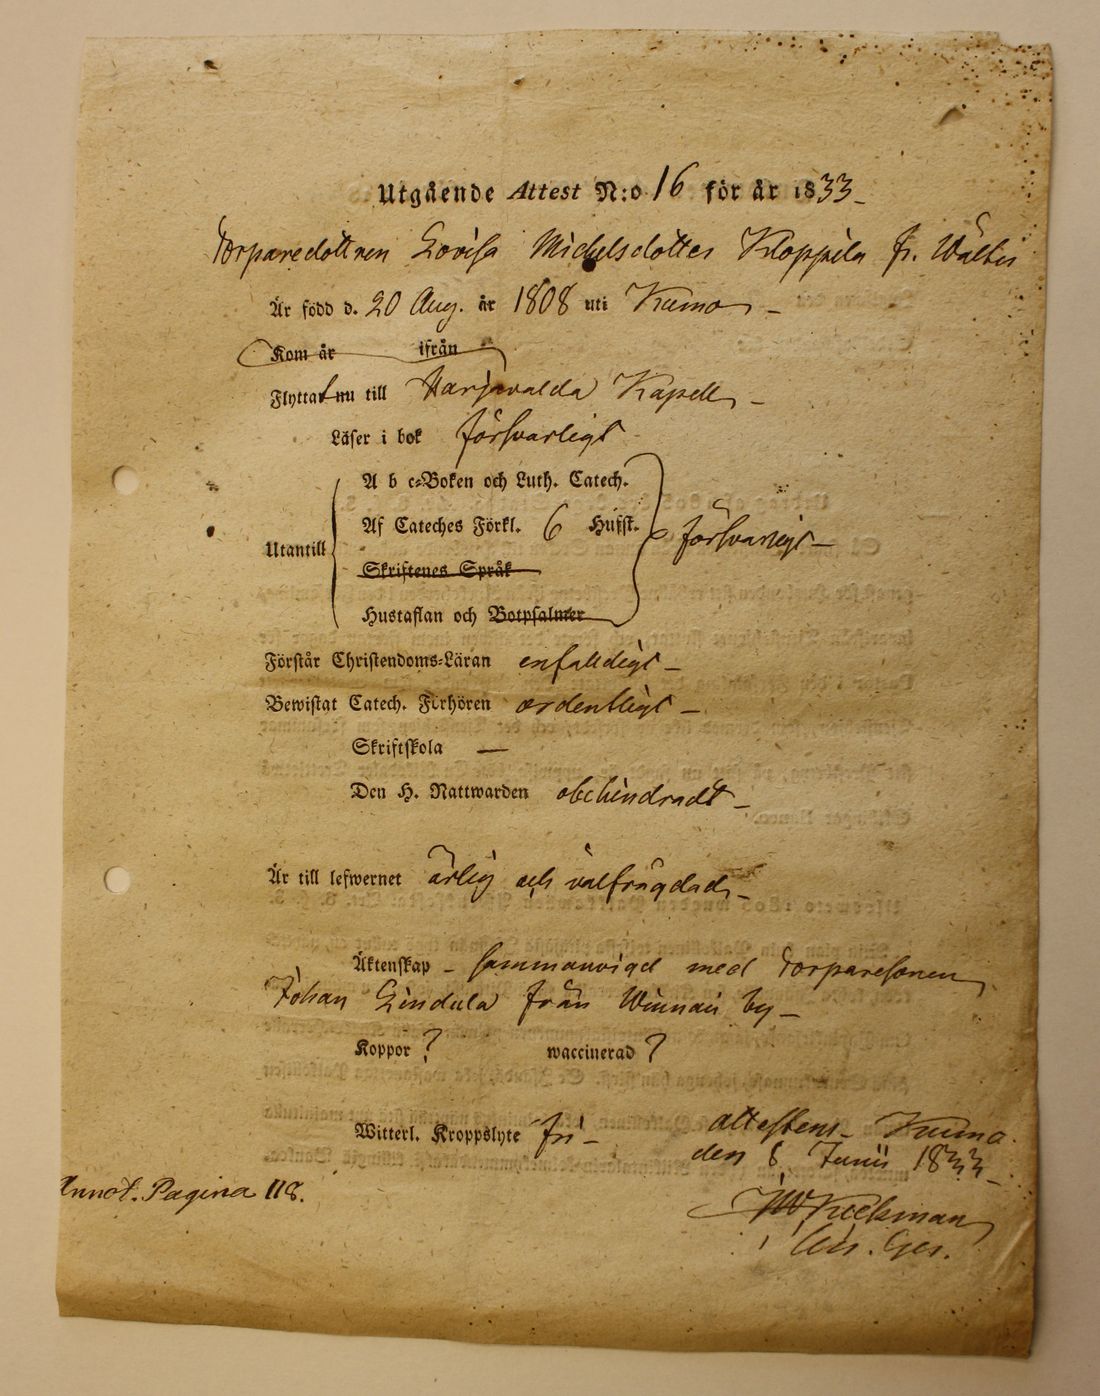 Utgående Attest N:o 16 för år 1833
Torparedottren Lovisa Michelsdotter Kloppila fr. Wälbis
Är född d. 20 Aug. år 1808 uti Kumo
Kom år ifrån
Flyttat nu till Harjavalda Kapell
Läser i bok försvarligt
A b c-Boken och Luth. Catech.
Af Cateches Förkl. 6 Hufst. försvarligt
Utantill
Skriftenes Språk
Hustaflan och Botpsalmer
Förstår Christendoms-Läran enfaldigt
Bewistat Catech. Förhören ordentligt
Skriftskola —
Den H. Nattwarden obehindradt
Är till lefwernet ärlig och välfrägdad
Äktenskap - sammanvigd med Torparesonen
Johan Lindula från Winnari by
Koppor ? waccinerad ?
Witterl. Kroppslyte fri
attesteras Kumo
den 8 Junii 1833
Annot. Pagina 118.